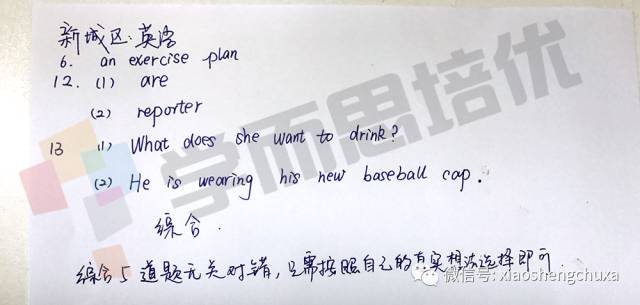 新城区:英语
6. an exercise plan
12. (1) are
(2) reporter
13 (1) What does she want to drink?
(2) He is wearing his new baseball cap.
综合
综合5道题无关对错,只需按照自己的真实想法选择即可.
学而思培优
微信号: xiaoshengchuxa